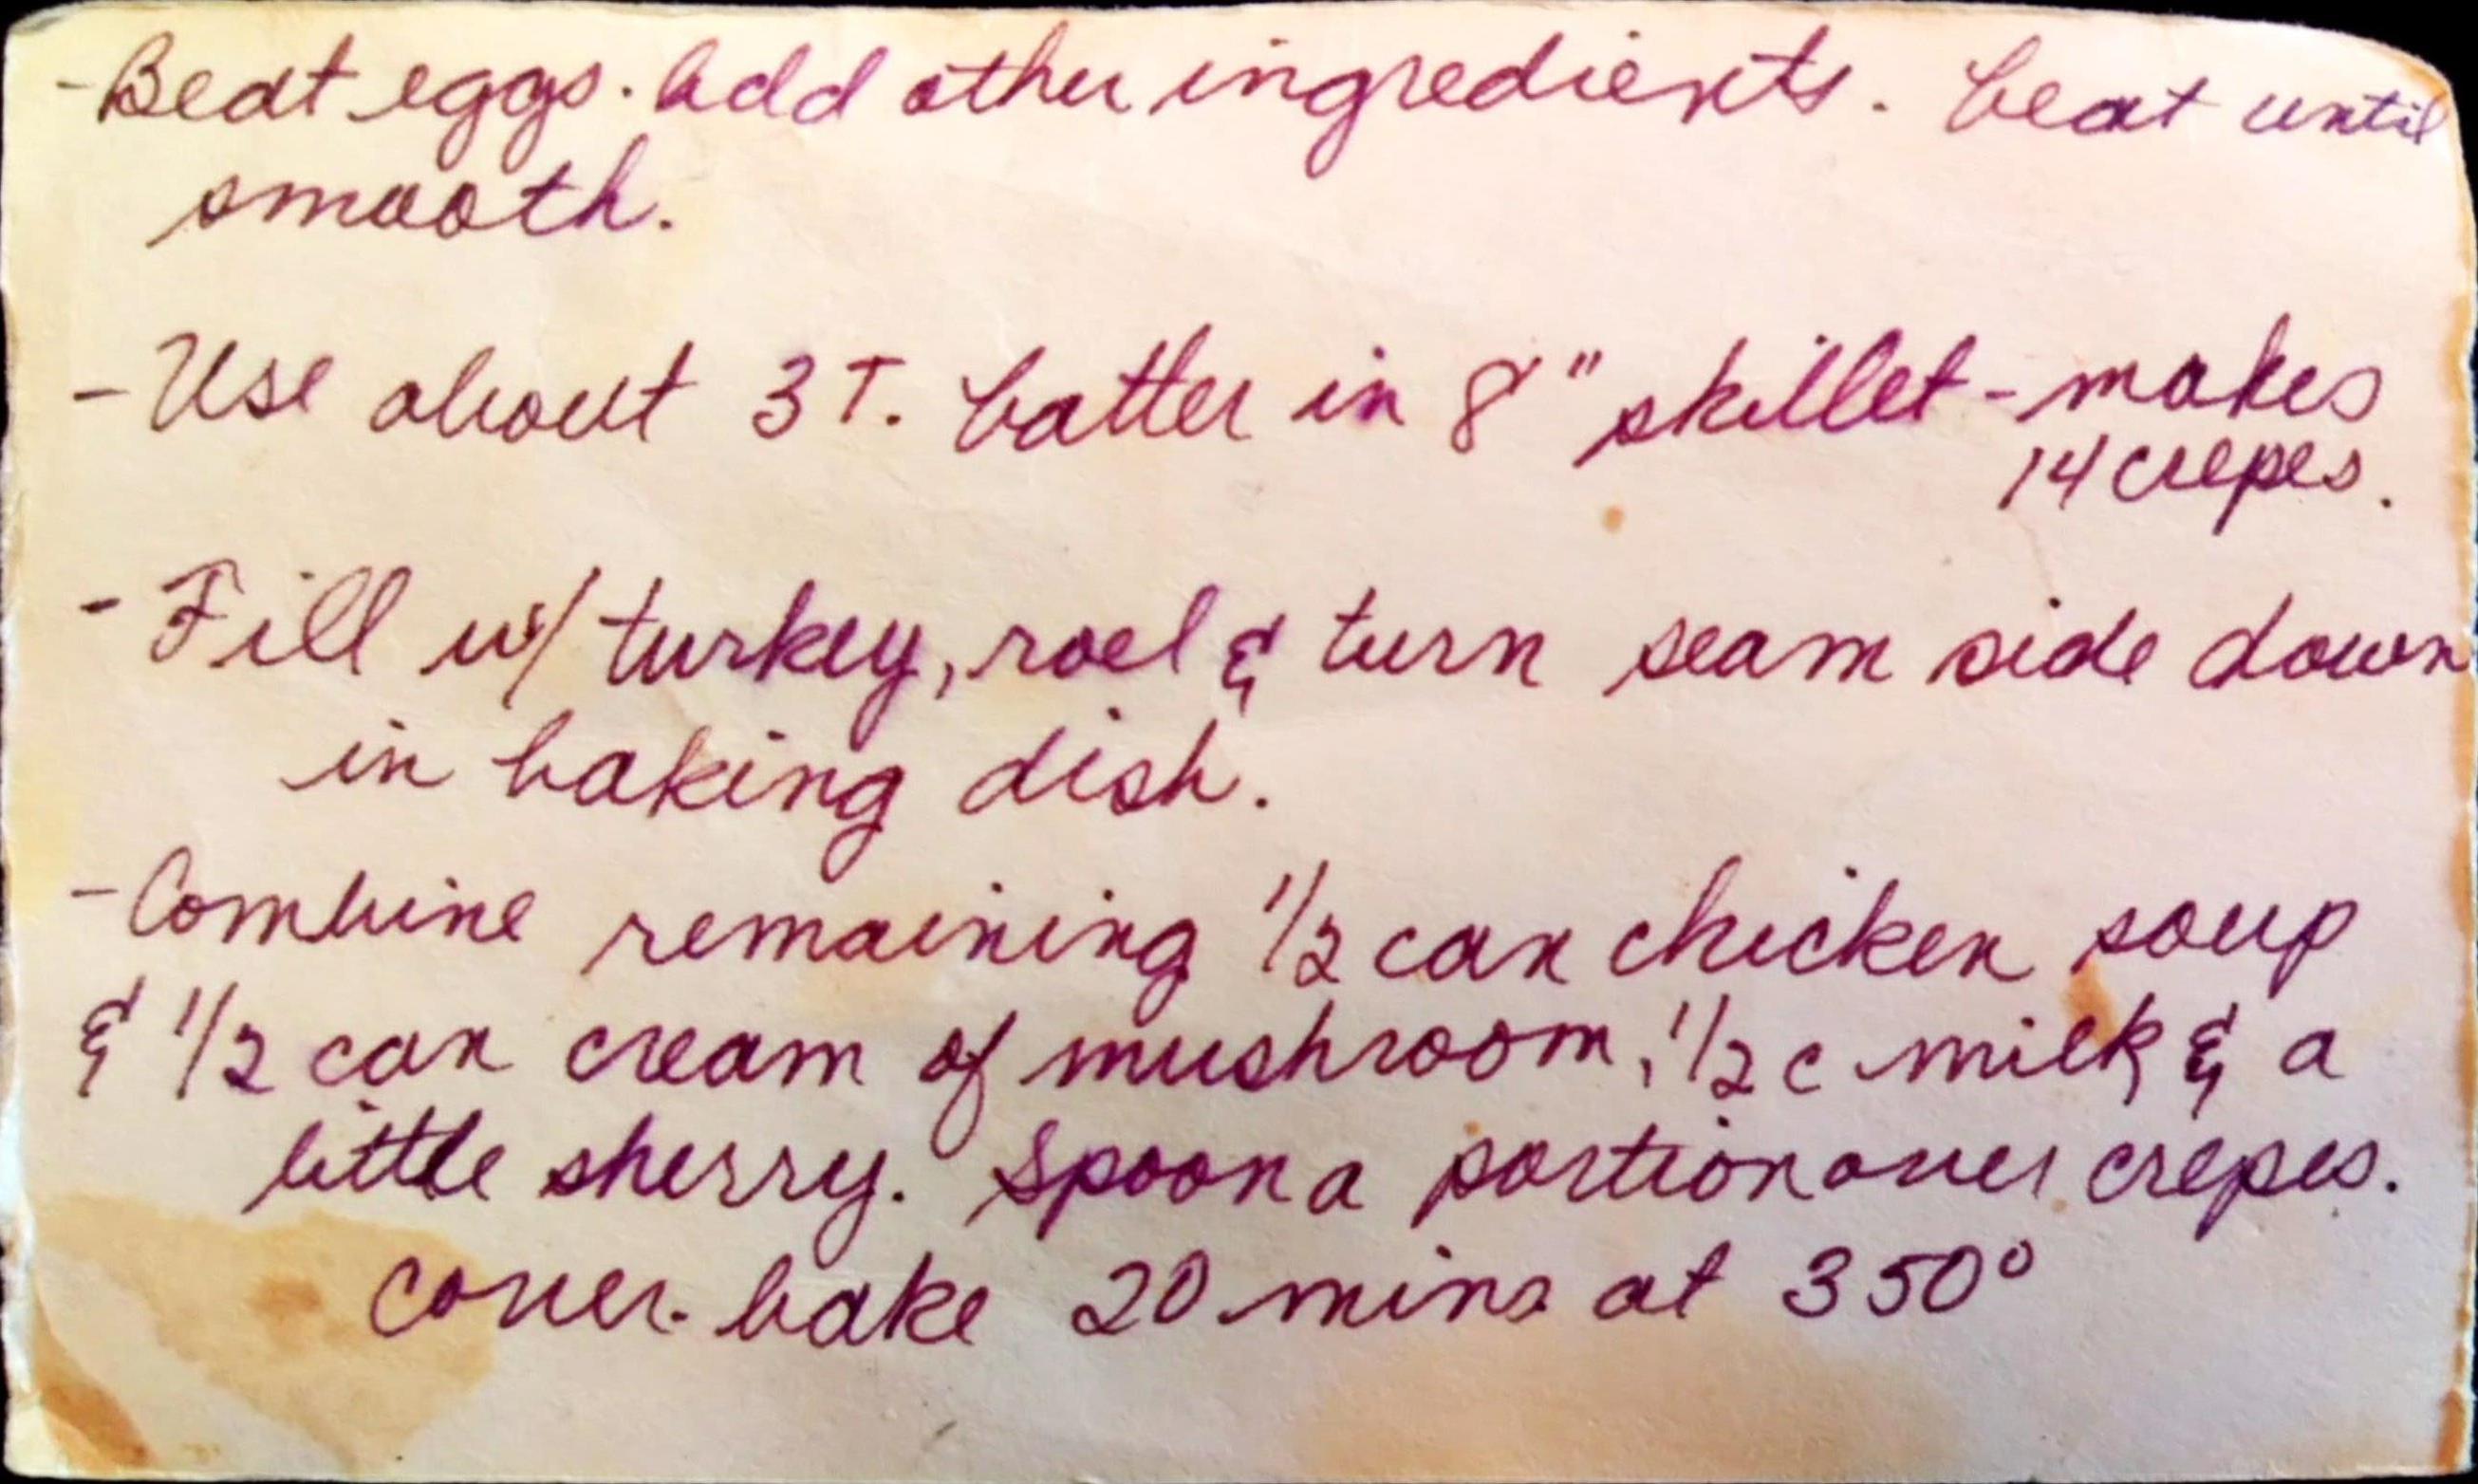 - Beat eggs. Add other ingredients. beat until
smooth.
- Use about 3 T. batter in 8" skillet - makes
14 crepes.
- Fill w/ turkey, roll & turn seam side down
in baking dish.
- Combine remaining 1/2 can chicken soup
& 1/2 can cream of mushroom, 1/2 c milk & a
little sherry. Spoon a portion over crepes.
cover. bake 20 mins at 350°